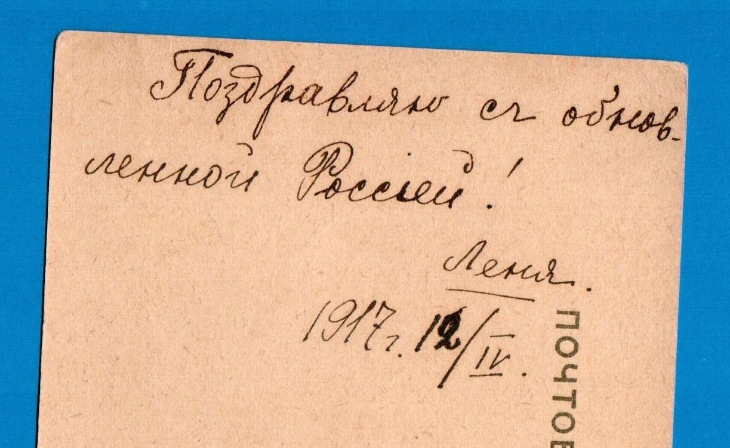 Поздравляю съ обнов-
ленной Россіей!
Леня.
1917 г. 12/IV.
ПОЧТОВ